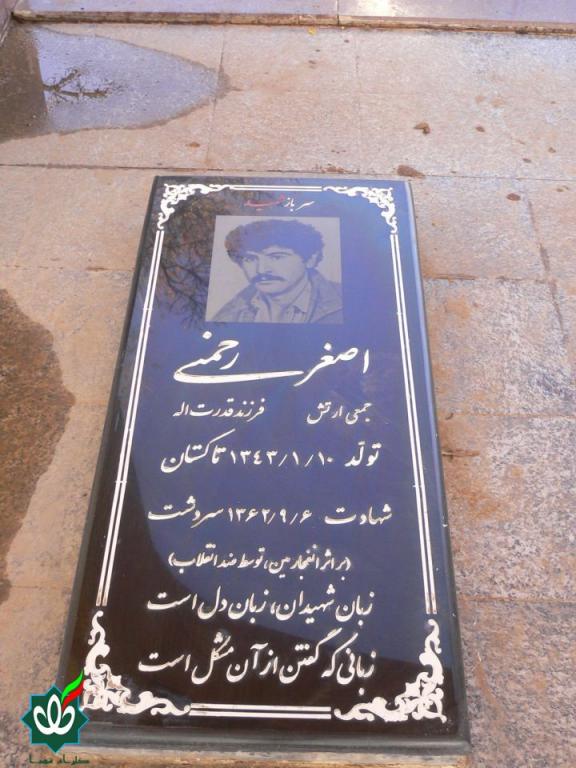 سرباز شهید
اصغر رحمنی
جمعی ارتش فرزند قدرت اله
تولد ۱۳۴۳/۱/۱۰ تاکستان
شهادت ۱۳۶۲/۹/۶ سردشت
(بر اثر انفجار مین، توسط ضد انقلاب)
زبان شهیدان، زبان دل است
زبانی که گفتن از آن مشکل است